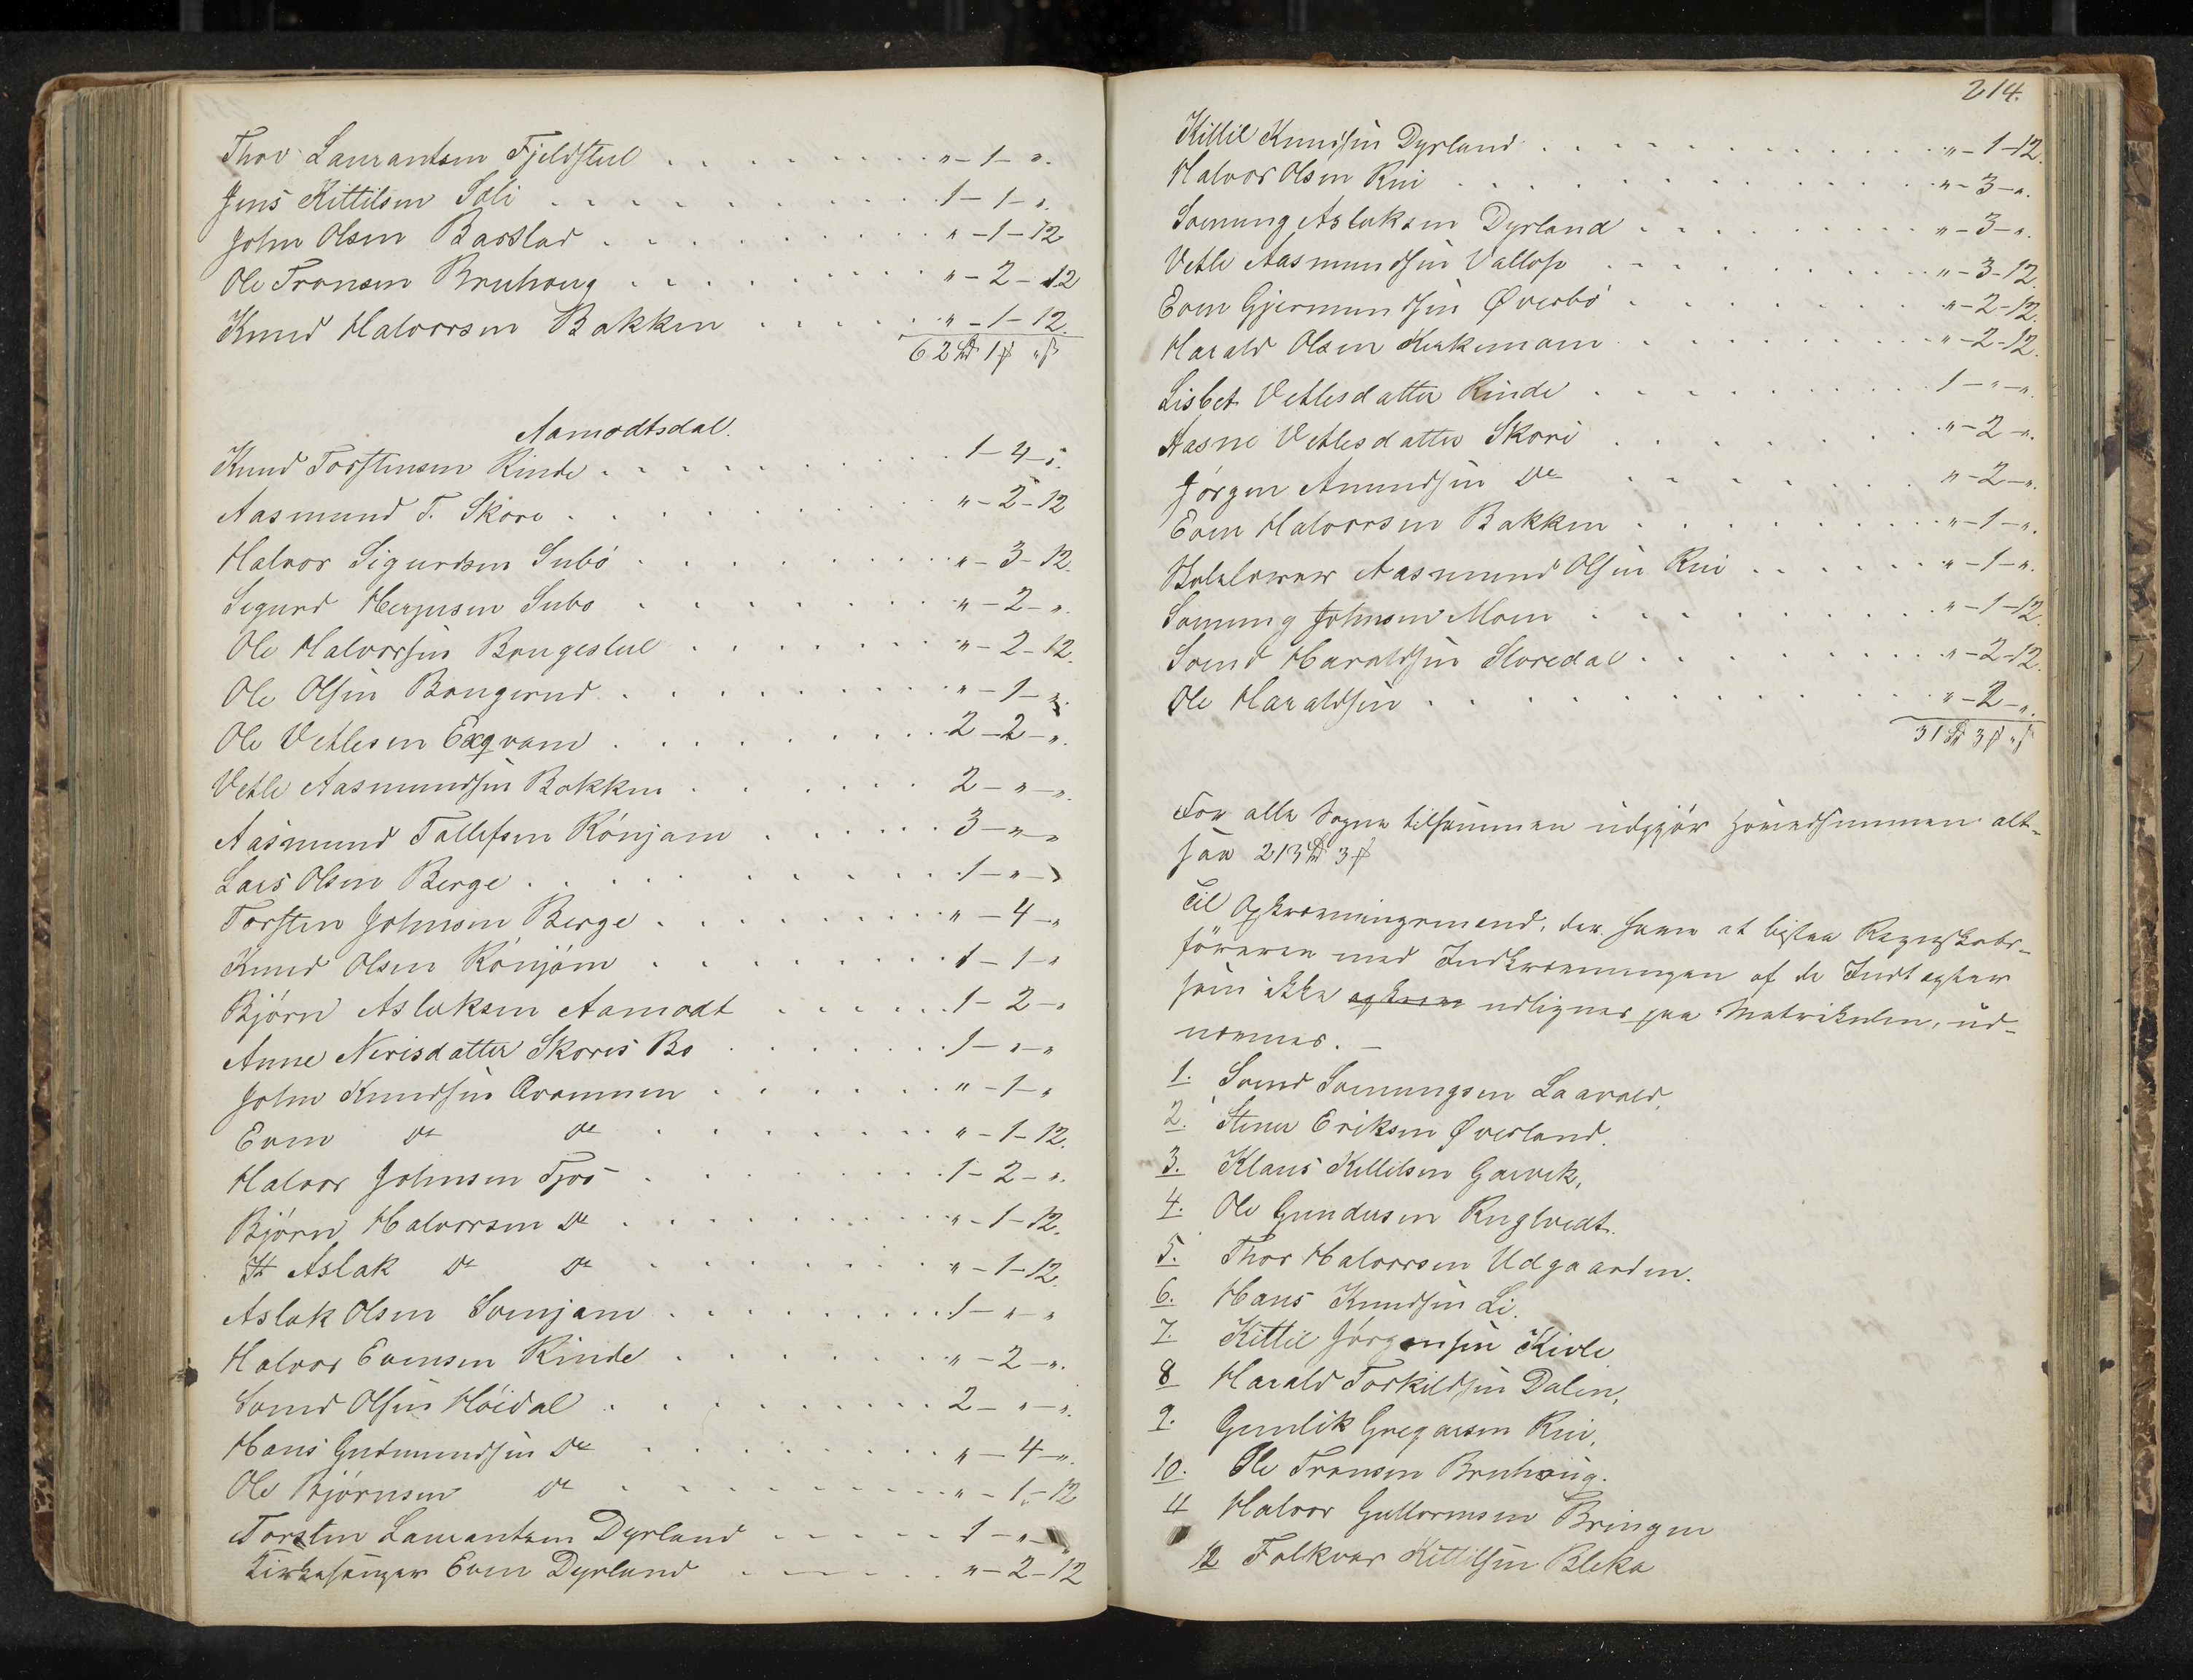 Thov Laurantsen Fjeldstul . . . . . . . . „ - 1 - „.
Jens Kittilsen Sali . . . . . . . . 1 - 1 - „.
John Olsen Barslad . . . . . . . . „ - 1 - 12
Ole Tronsen Bruhaug . . . . . . . . „ - 2 - 12
Knud Halvorsen Bakken . . . . . . „ - 1 - 12.
62 1 „
Aamodtsdal.
Knud Torstensen Rinde . . . . . . . . 1 - 4 - „.
Aasmund T. Skore . . . . . . . . „ - 2 - 12
Halvor Sigurdsen Subö . . . . . . . . „ - 3 - 12.
Sigurd Herjusen Subo . . . . . . . . „ - 2 - „.
Ole Halvorsen Bougestul . . . . . . „ - 2 - 12.
Ole Olsen Bougerud . . . . . . . . „ - 1 - „.
Ole Vetlesen . . . . . . . . 2 - 2 - „.
Vetle Aasmundsen Bakken . . . . . . 2 - „ - „.
Aasmund Tallefsen Rönjam . . . . . 3 - „ - „
Lars Olsen Berge . . . . . . . . 1 - „ - „
Torsten Johnsen Berge . . . . . . . . „ - 4 - „
Knud Olsen Rönjöm . . . . . . . . 1 - 1 - „
Björn Aslaksen Aamodt . . . . . . 1 - 2 - „
Anne Nirisdatter Skores Bo . . . . . . 1 - „ - „
John Knudsen . . . . . . „ - 1 - „
Even Do Do . . . . . . . . „ - 1 - 12.
Halvor Johnsen Tjos . . . . . . . . 1 - 2 - „.
Björn Halvorsen Do . . . . . . . . „ - 1 - 12.
Aslak Do Do . . . . . . . . „ - 1 - 12.
Aslak Olsen Svenjam . . . . . . . . 1 - „ - „
Halvor Evensen Rinde . . . . . . . . „ - 2 - „.
Svend Olsen Höidal . . . . . . . . 2 - „ - „.
Hans Gudmundsen Do . . . . . . . . „ - 4 - „.
Ole Björnsen Do . . . . . . . . „ - 1 - 12
Torsten Laurantsen Dyrland . . . . . 1 - „
Kirkesanger Even Dyrland . . . . . „ - 2 - 12
214.
Kittil Knudsen Dyrland . . . . . . . . „ - 1 - 12.
Halvor Olsen Rui . . . . . . . . „ - 3 - „.
Sveinung Aslaksen Dyrland . . . . . . „ - 3 - „.
Vetle Aasmundsen Vallofs . . . . . . „ - 3 - 12.
Even Gjermundsen Øverbö . . . . . . „ - 2 - 12.
Harald Olsen . . . . . . „ - 2 - 12.
Lisbet Vetlesdatter Rinde . . . . . . 1 - „ - „.
Aasne Vetlesdatter Skori . . . . . . „ - 2 - „.
Jörgen Amundsen Do . . . . . . „ - 2 - „.
Even Halvorsen Bakken . . . . . . „ - 1 - „.
Skolelærer Aasmund Olsen Rui . . . . . . „ - 1 - „.
Sveinung Johnsen Moen . . . . . . „ - 1 - 12.
Svend Haraldsen Storedal . . . . . . „ - 2 - 12.
Ole Haraldsen . . . . . . „ - 2 - „.
31 3 „
For alle Sogne tilsammen udgjör Hovedsummen alt-
saa 213 3
Til Opkrævningsmænd, der have at bistaa Regnskabs-
föreren med Indkrævningen af de Indtægter
som ikke opkræve udlignes paa Matrikulen, ud-
nævnes. —
1. Svend Sveinungsen Laavald,
2. Stener Eriksen Øverland.
3. Klaus Kittilsen Garvik,
4. Ole Gundersen Rugtvedt.
5. Thor Halvorsen Udgaarden.
6. Hans Knudsen Li.
7. Kittil Jörgensen Kivle
8 Harald Torkildsen Dalen,
9. Gunlik Gregarsen Rui,
10. Ole Tronsen Bruhaug.
11 Halvor Guttormsen Bringen
12 Folkvar Kittilsen Bleka